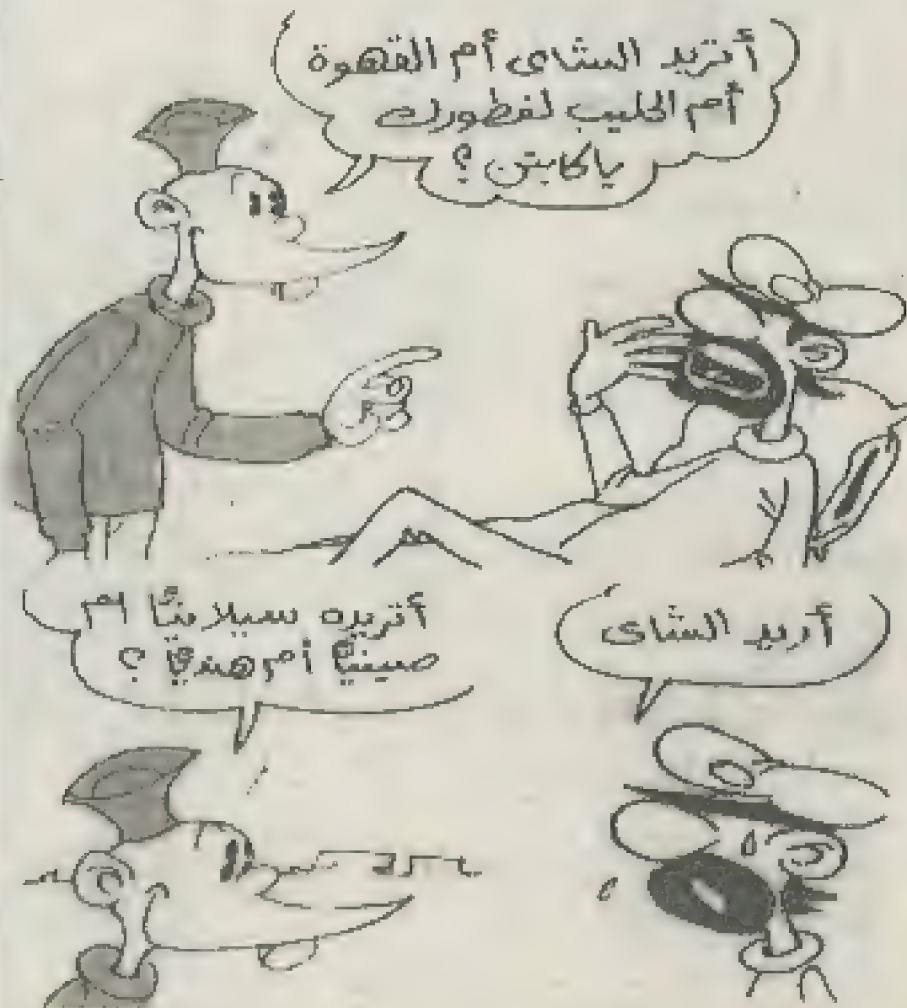 أتريد الشاى أم القهوة
أم الحليب لفطورك
ياكابتن ؟
أريد الشاى
أتريده سيلانيًا أم
صينيًا أم هنديًا ؟